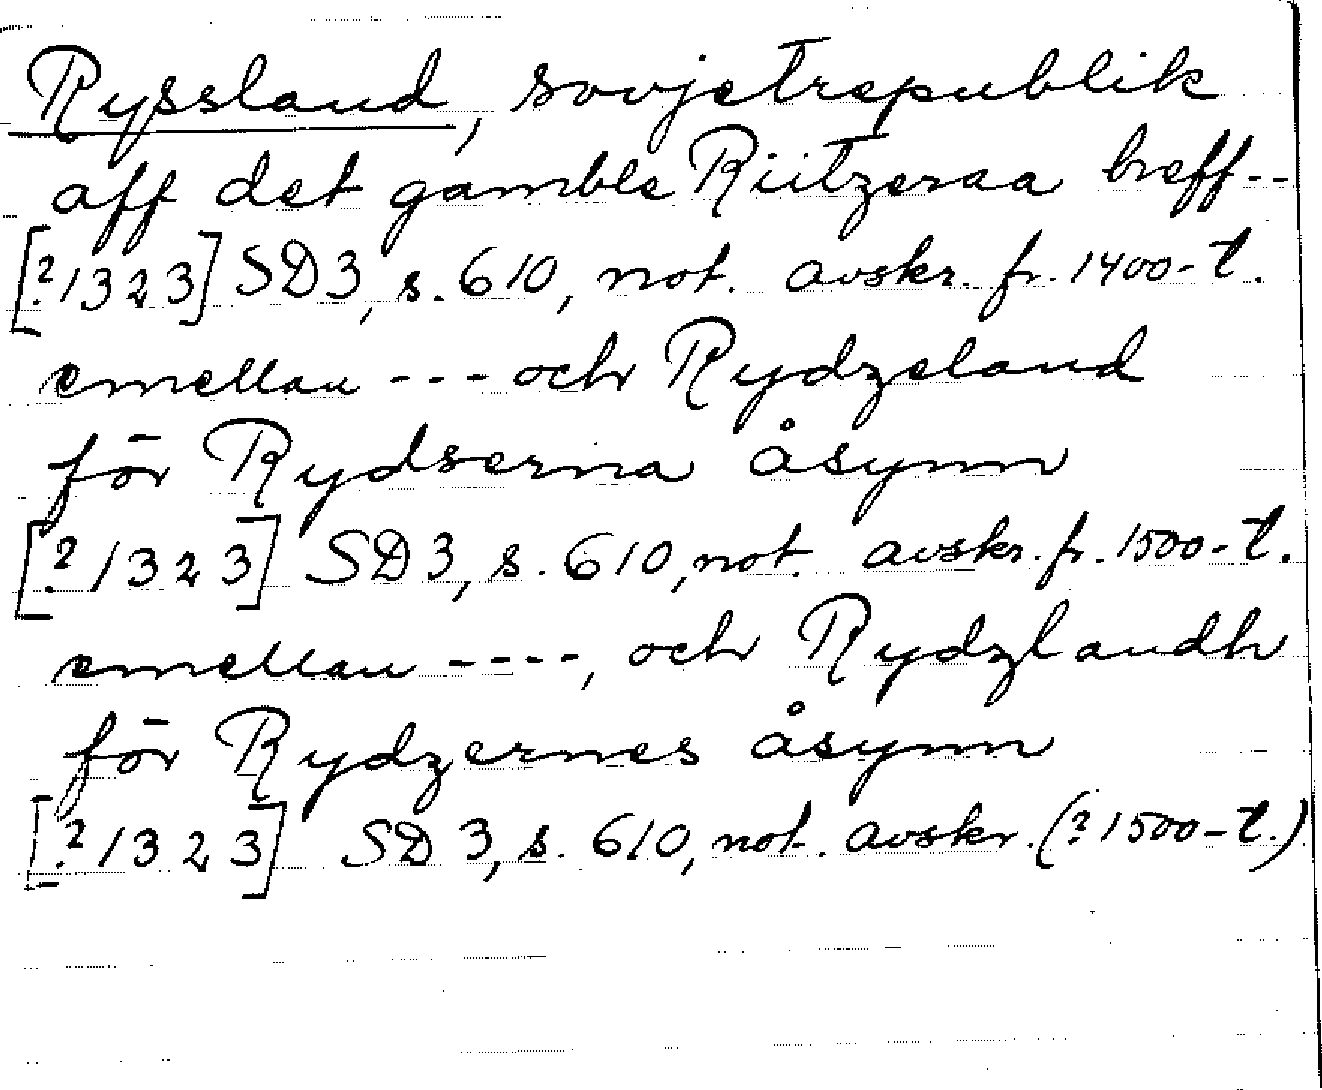 Ryssland, sovjetrepublik
aff det gamble Riitzeraa breff--
[?1323] SD3, s. 610, not. avskr. fr. 1400-t.
emellan --- och Rydzeland
för Rydserna åsynn
[?1323] SD3, s. 610, not. avskr. fr. 1500-t.
emellan ----, och Rydzlandh
för Rydzernes åsynn
[?1323] SD 3, s. 610, not. avskr. (?1500-t.)